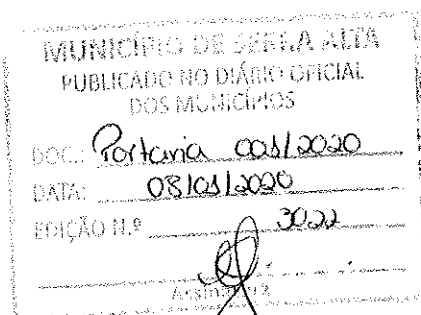 MUNICÍPIO DE SERRA ALTA
PUBLICADO NO DIÁRIO OFICIAL
DOS MUNICÍPIOS
DOC.: Portaria 001/2020
DATA: 08/01/2020
EDIÇÃO N.º 3022
Assinatura